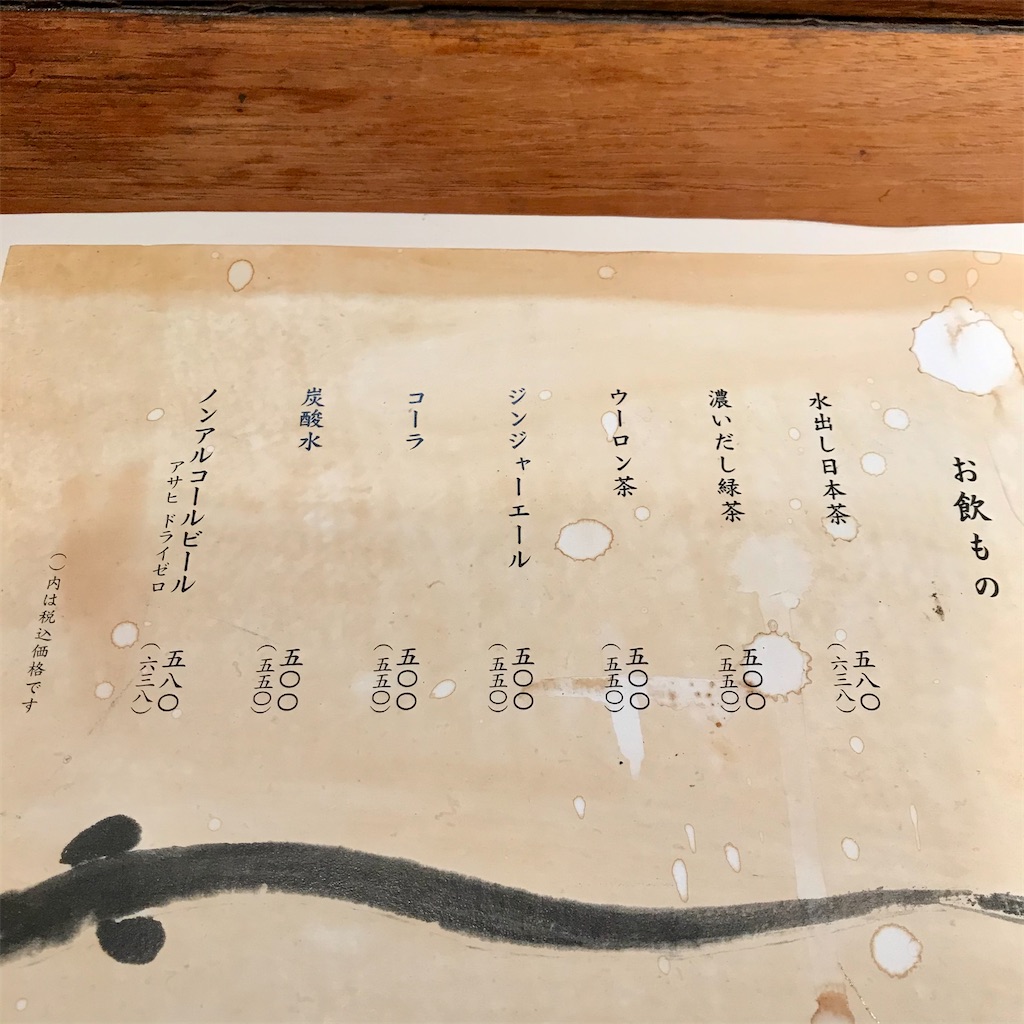 お飲もの
水出し日本茶
五八〇
（六三八）
濃いだし緑茶
五〇〇
（五五〇）
ウーロン茶
五〇〇
（五五〇）
ジンジャーエール
五〇〇
（五五〇）
コーラ
五〇〇
（五五〇）
炭酸水
五〇〇
（五五〇）
ノンアルコールビール
アサヒ ドライゼロ
五八〇
（六三八）
（）内は税込価格です